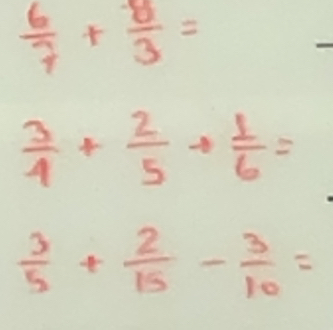 6/7 + 8/3 =
3/4 + 2/5 + 1/6 =
3/5 + 2/15 - 3/10 =